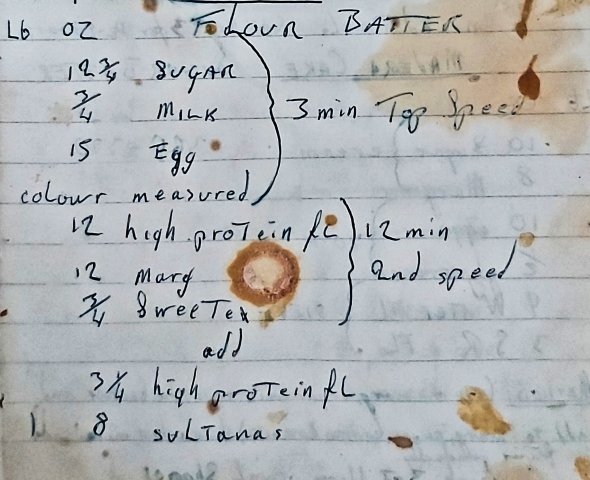 Lb OZ FLOUR BATTER
12 3/4 SUGAR
3/4 MILK 3 min Top Speed
15 Egg
colour measured
12 high proTein fL 12 min
12 marg 2nd speed
3/4 SweeTex
add
3 1/4 high proTein fL
1 8 sulTanas